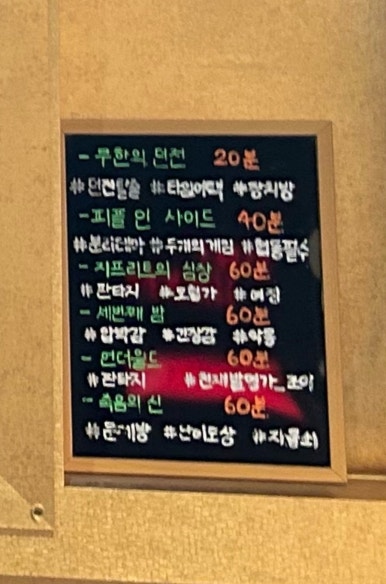 -무한의 던전 20분
#던전탈출 #타임어택 #땅지방
-피플 인 사이드 40분
#분리테마 #두개의게임 #협동필수
- 지프리트의 심장 60분
#판타지 #모험가 #여정
- 세번째 밤 60분
#압박감 #긴장감 #악몽
- 언더월드 60분
#판타지 #천재발명가_조이
- 죽음의 신 60분
#문제방 #난이도상 #자물쇠